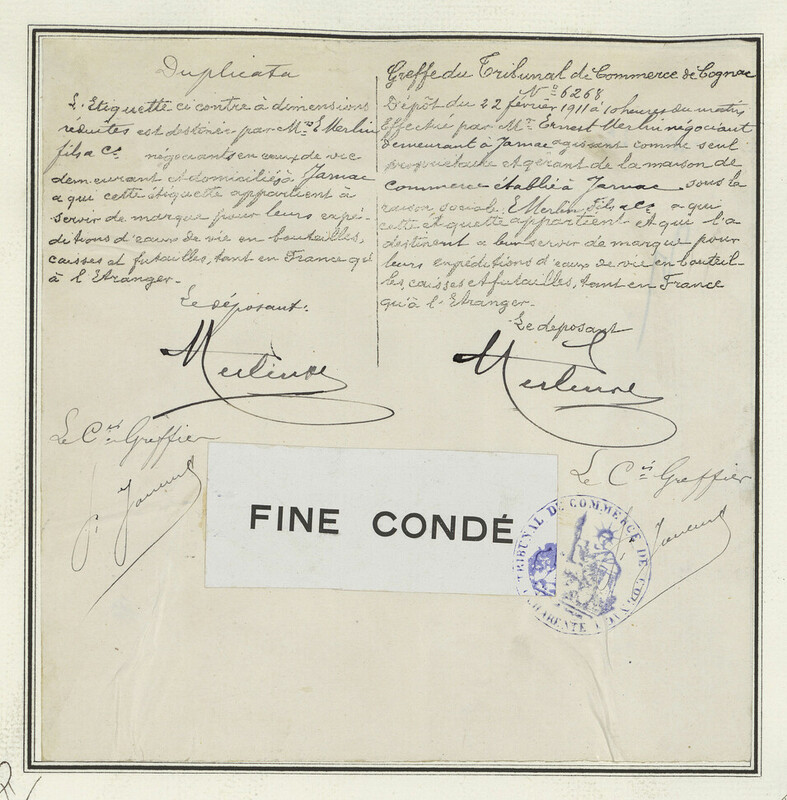 Duplicata
L'Etiquette ci contre à dimensions
réduites est destinée par Mrs E. Merlin
fils & Ce négociants en eaux de vie
demeurant et domiciliés à Jarnac
a qui cette étiquette appartient à
servir de marque pour leurs expé-
ditions d'eaux de vie en bouteilles,
caisses et futailles, tant en France qu'
à l'Etranger.
Le déposant.
Le Cis Greffier
Greffe du Tribunal de Commerce de Cognac
No 6268
Dépôt du 22 février 1911 à 10 heures du matin
Effectué par Mr Ernest Merlin négociant
demeurant à Jarnac agissant comme seul
propriétaire et gérant de la maison de
commerce établie à Jarnac sous la
raison sociale E. Merlin, Fils & Ce a qui
cette étiquette appartient et qui l'a
destinent a leur servir de marque pour
leurs expéditions d'eaux de vie en bouteil-
les, caisses et futailles, tant en France
qu'à l'Etranger.
Le deposant
Le Cis Greffier
FINE CONDÉ
TRIBUNAL DE COMMERCE DE COGNAC
CHARENTE